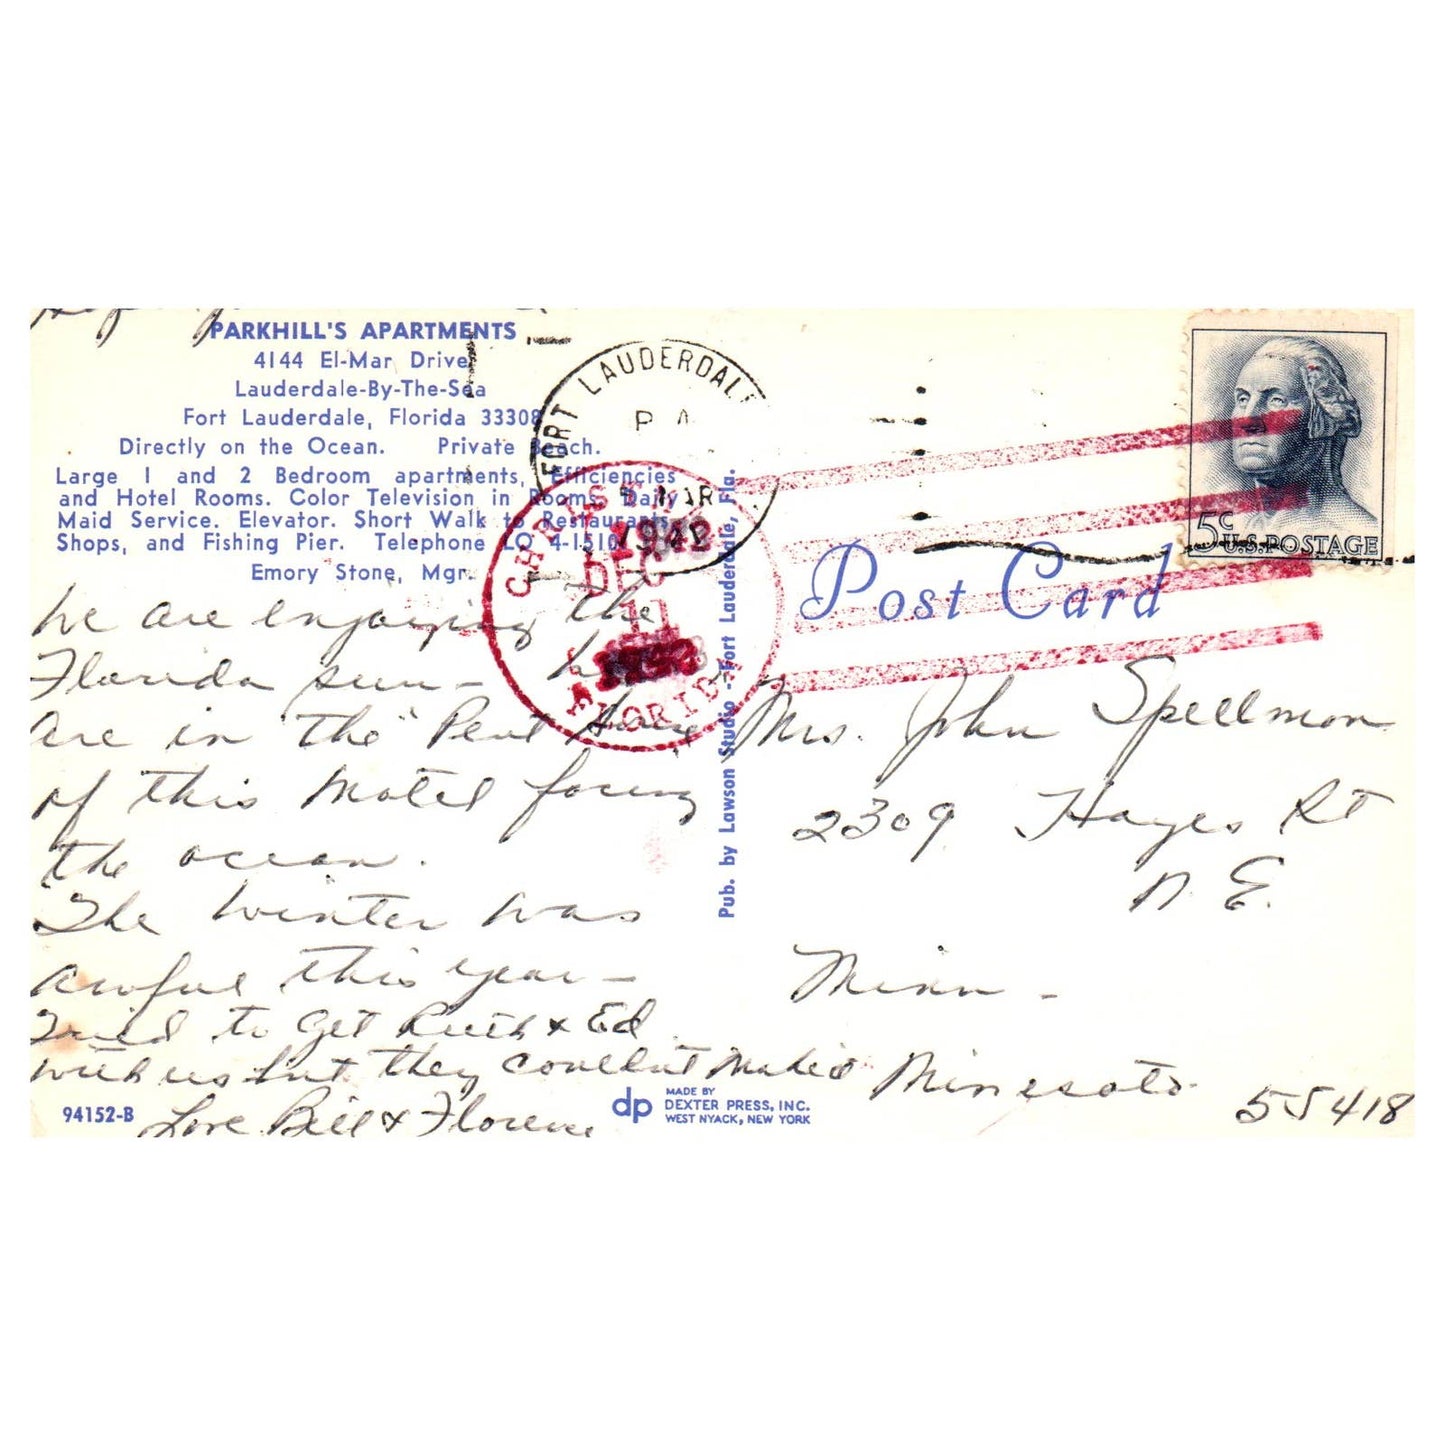 PARKHILL'S APARTMENTS
4144 El-Mar Drive
Lauderdale-By-The-Sea
Fort Lauderdale, Florida 33308
Directly on the Ocean. Private Beach.
Large 1 and 2 Bedroom apartments, Efficiencies
and Hotel Rooms. Color Television in Rooms. Daily
Maid Service. Elevator. Short Walk to Restaurants,
Shops, and Fishing Pier. Telephone LO 4-1510
Emory Stone, Mgr.
We are enjoying the
Florida sun - We
are in the "Pent House"
of this Motel facing
the ocean.
The Winter was
awful this year -
Tried to Get Ruth & Ed
with us but they couldn't make it
Love Bill & Florence
94152-B
FORT LAUDERDALE
MAR
CHRISTMAS
DEC
11
FLORIDA
Pub. by Lawson Studio - Fort Lauderdale, Fla.
dp
MADE BY
DEXTER PRESS, INC.
WEST NYACK, NEW YORK
5c U.S. POSTAGE
Post Card
Mrs. John Spellman
2309 Hayes St
N. E.
Minn -
Minnesota
55418